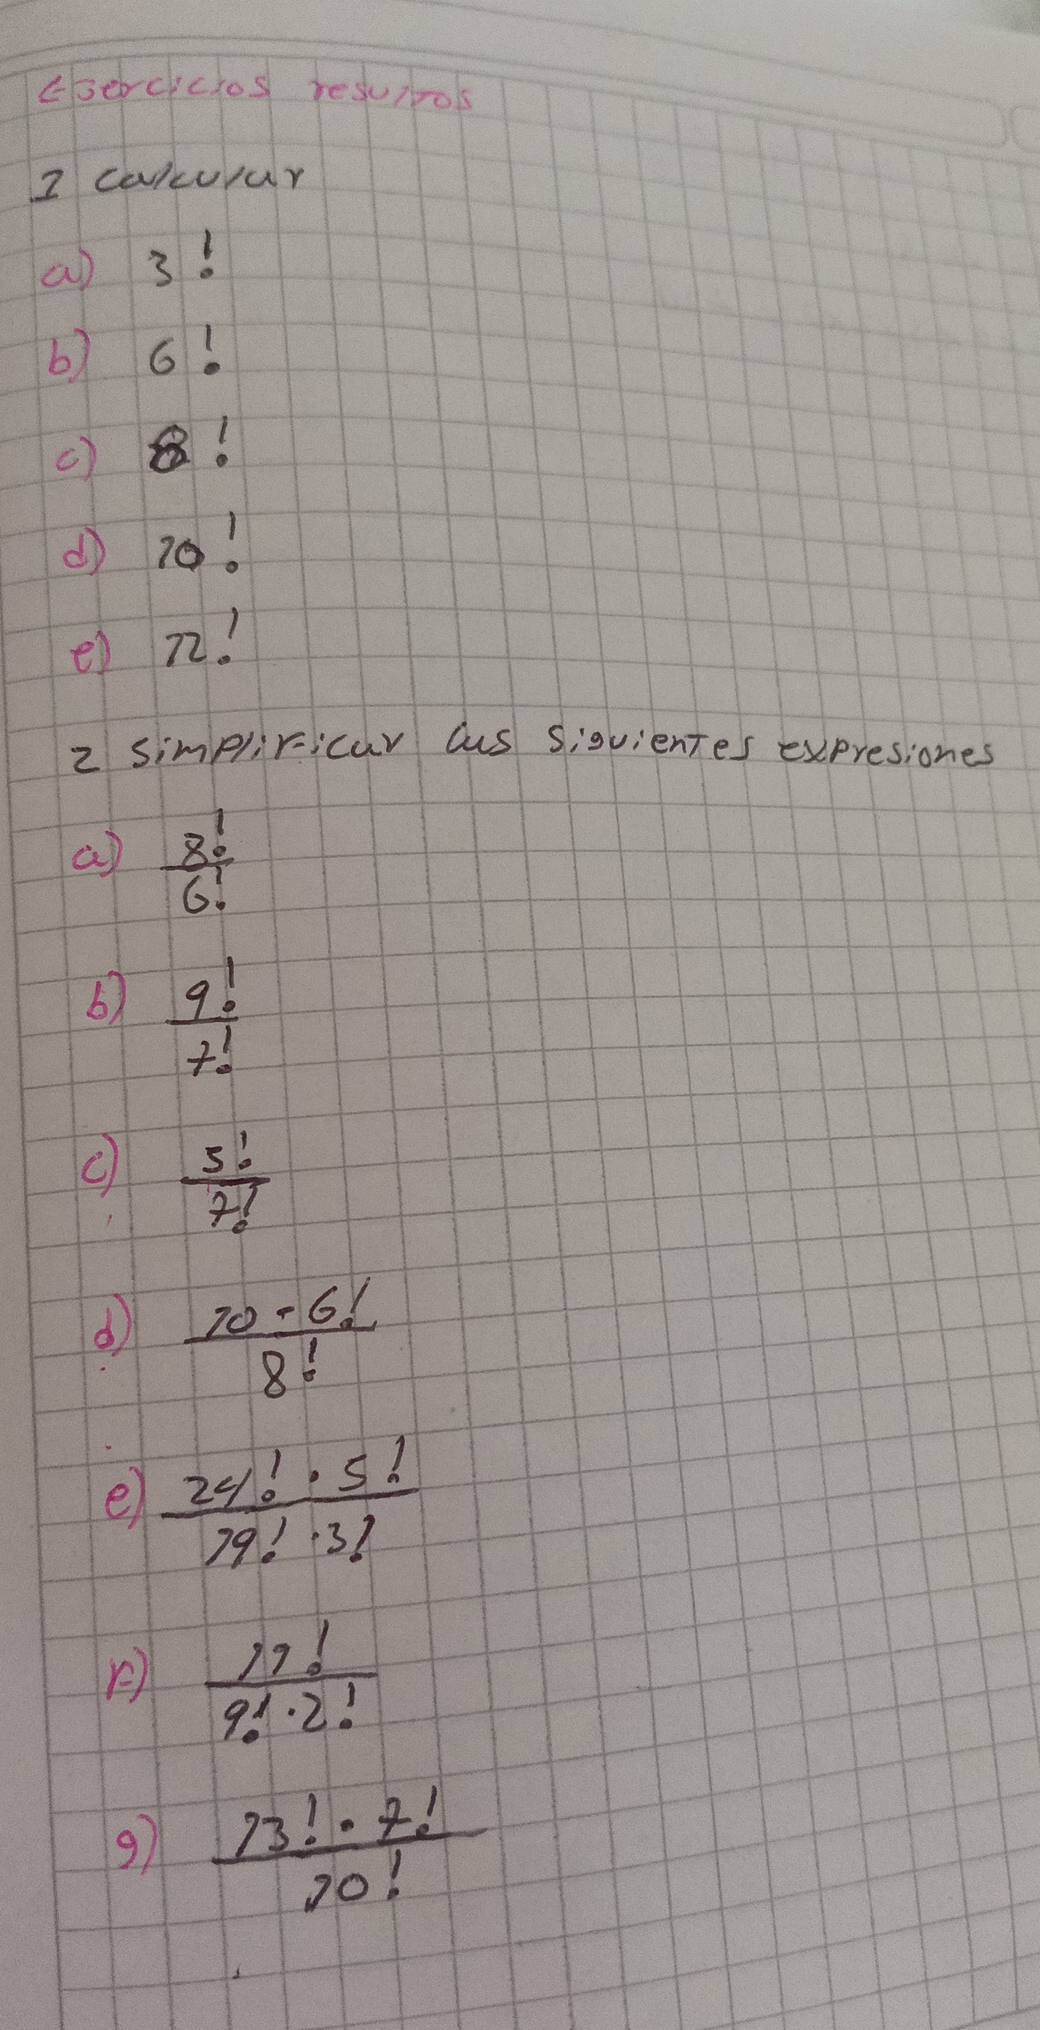 Ejercicios resultos
1 calcular
a) 3!
b) 6!
c) 8!
d) 10!
e) 12!
2 simplificar las siguientes expresiones
a) 8!
6!
b) 9!
7!
c) 5!
7!
d) 10 · 6!
8!
e) 24! · 5!
19! · 3!
f) 11!
9! · 2!
g) 13! · 7!
10!